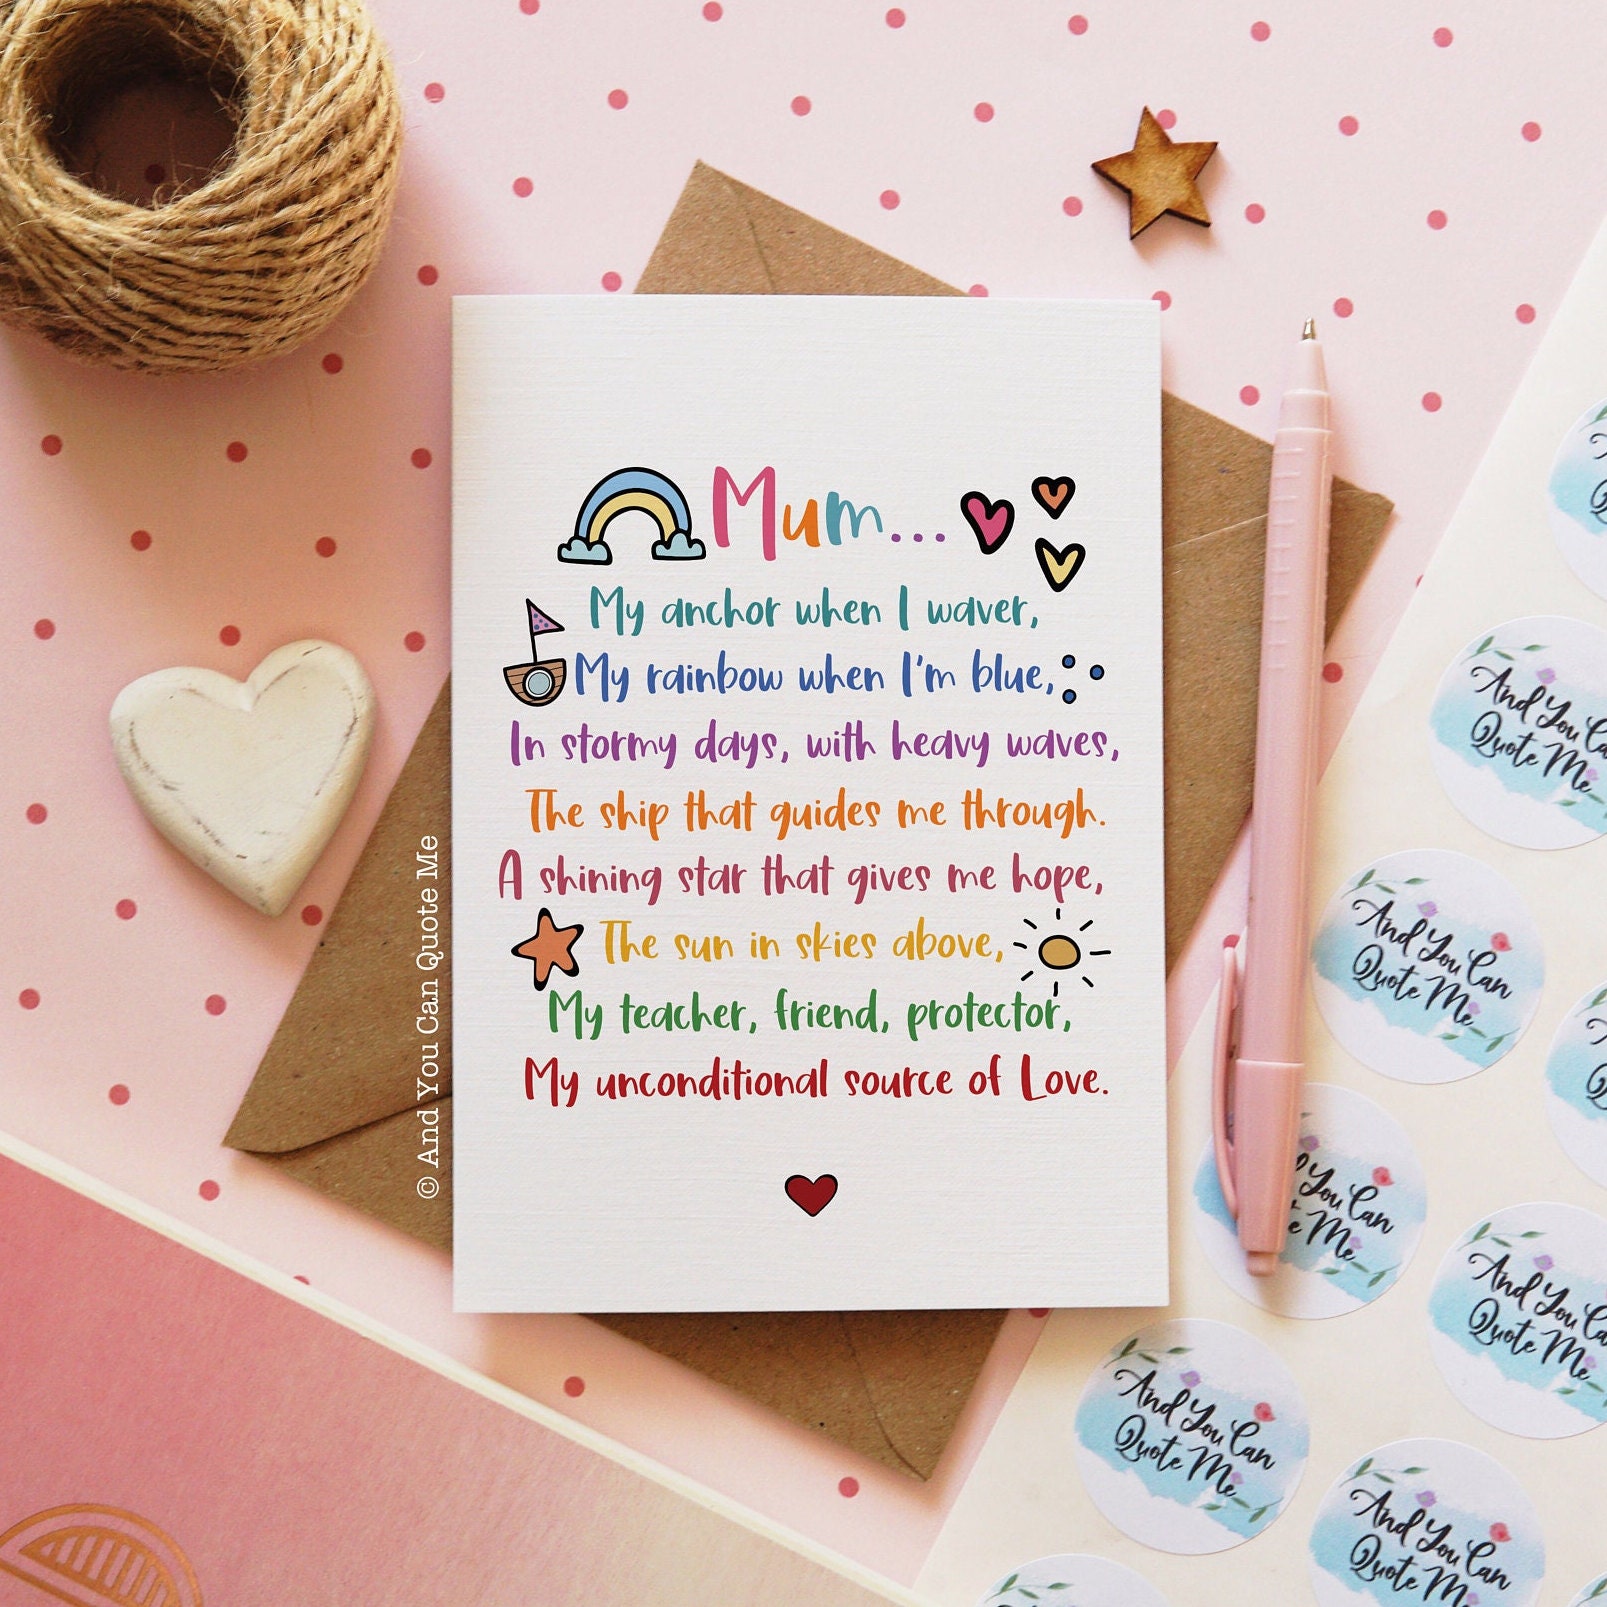 Mum...
My anchor when I waver,
My rainbow when I'm blue,
In stormy days, with heavy waves,
The ship that guides me through.
A shining star that gives me hope,
The sun in skies above,
My teacher, friend, protector,
My unconditional source of Love.
© And You Can Quote Me
And You Can
Quote Me
And You Can
Quote Me
You Can
Me
And You Can
Quote Me
And You Can
Quote Me
And You Ca
Quote Me